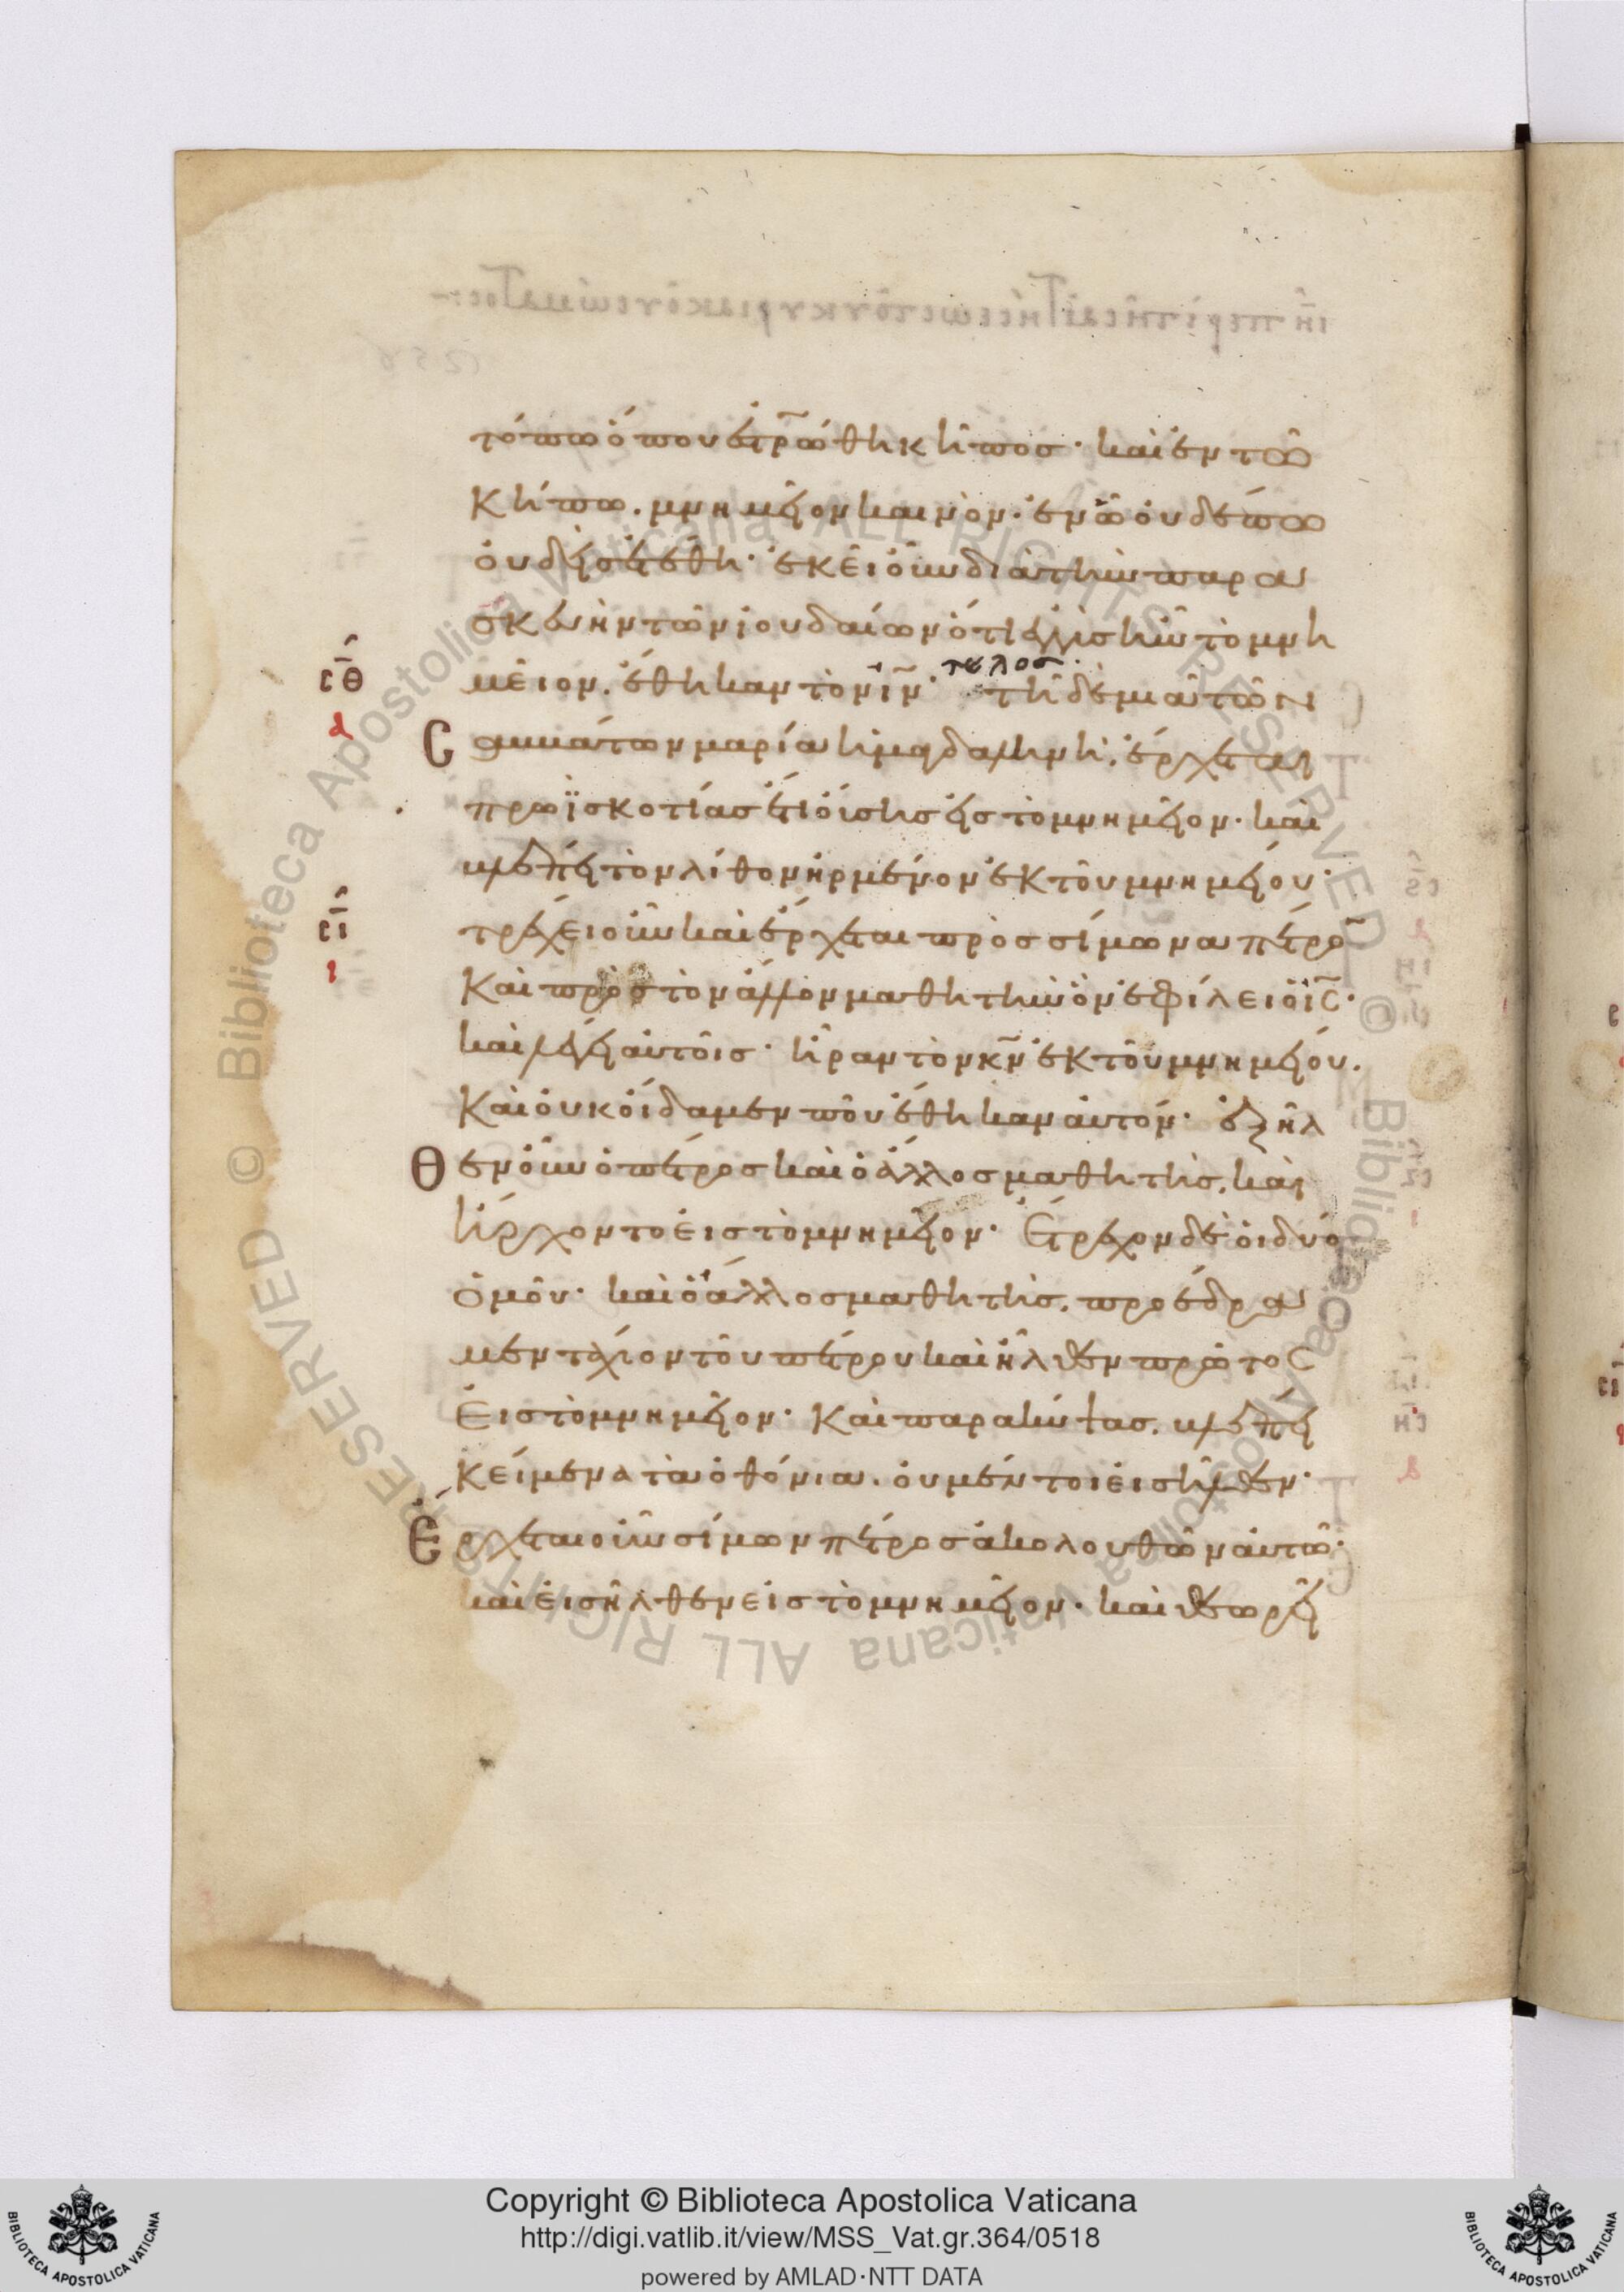 τόπω ὅπου ἐστρώθη κῆπος· καὶ ἐν τῶ
κήπω. μνημεῖον καινὸν· ἐν ᾧ οὐδέπω
οὐδεὶς ἐτέθη· ἐκεῖ οὖν διὰ τὴν παρα
σκευὴν τῶν ἰουδαίων ὅτι ἐγγὺς ἦν τὸ μνη
τελος
σθ μεῖον. ἔθηκαν τὸν ιν· τῆ δὲ μιᾶ τῶν
α
Σαββάτων μαρία ἡ μαγδαληνὴ. ἔρχεται
πρωῒ σκοτίας ἔτι οὔσης εἰς τὸ μνημεῖον· καὶ
βλέπει τὸν λίθον ἠρμένον ἐκ τοῦ μνημείου·
σι τρέχει οὖν καὶ ἔρχεται πρὸς σίμωνα πέτρο
ι
καὶ πρὸς τὸν ἄλλον μαθητὴν ὃν ἐφίλει ὁ ις·
καὶ λέγει αὐτοῖς· ἦραν τὸν κν ἐκ τοῦ μνημείου.
καὶ οὐκ οἴδαμεν ποῦ ἔθηκαν αὐτόν· ἐξῆλ
Θεν οὖν ὁ πέτρος καὶ ὁ ἄλλος μαθητὴς. καὶ
ἤρχοντο εἰς τὸ μνημεῖον· Ἔτρεχον δὲ οἱ δύο
ὁμοῦ· καὶ ὁ ἄλλος μαθητὴς. προέδρα
μεν τάχιον τοῦ πέτρου καὶ ἦλθεν πρῶτος
εἰς τὸ μνημεῖον· καὶ παρακύψας. βλέπει
κείμενα τὰ ὀθόνια. οὐ μέντοι εἰσῆλθεν·
Ἔρχεται οὖν σίμων πέτρος ἀκολουθῶν αὐτῶ·
καὶ εἰσῆλθεν εἰς τὸ μνημεῖον· καὶ θεωρεῖ
© Biblioteca Apostolica Vaticana ALL RIGHTS RESERVED
© Biblioteca Apostolica Vaticana ALL RIGHTS RESERVED
Copyright © Biblioteca Apostolica Vaticana
http://digi.vatlib.it/view/MSS_Vat.gr.364/0518
powered by AMLAD·NTT DATA
BIBLIOTECA APOSTOLICA VATICANA
BIBLIOTECA APOSTOLICA VATICANA